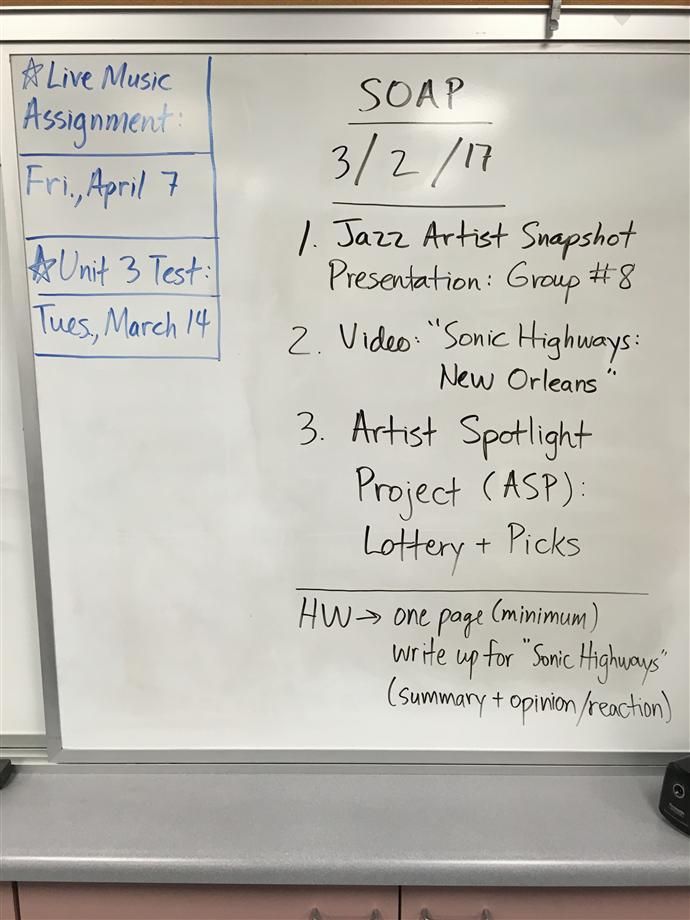 ☆Live Music
Assignment:
Fri., April 7
☆Unit 3 Test:
Tues., March 14
SOAP
3/2/17
1. Jazz Artist Snapshot
Presentation: Group #8
2. Video: "Sonic Highways:
New Orleans"
3. Artist Spotlight
Project (ASP):
Lottery + Picks
HW → one page (minimum)
write up for "Sonic Highways"
(summary + opinion/reaction)